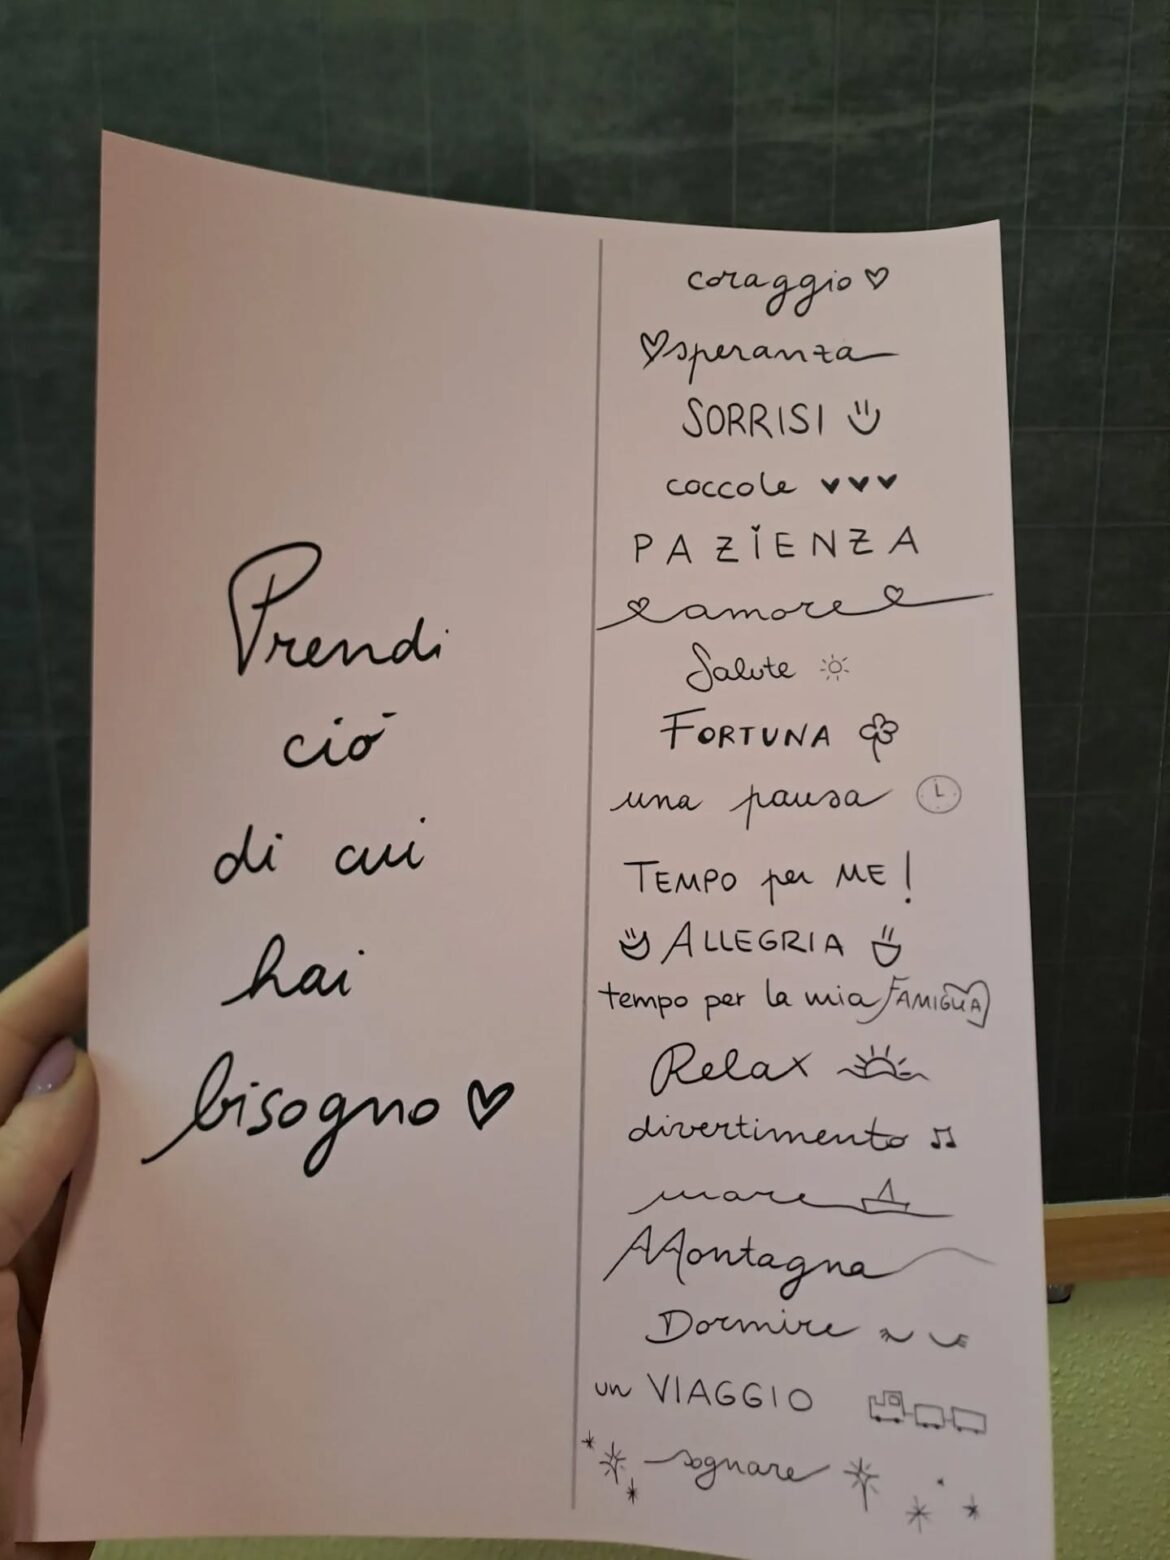 Prendi
ciò
di cui
hai
bisogno
coraggio
speranza
SORRISI
coccole
PAZIENZA
amore
Salute
FORTUNA
una pausa
TEMPO per ME!
ALLEGRIA
tempo per la mia FAMIGLIA
Relax
divertimento
mare
Montagna
Dormire
un VIAGGIO
sognare